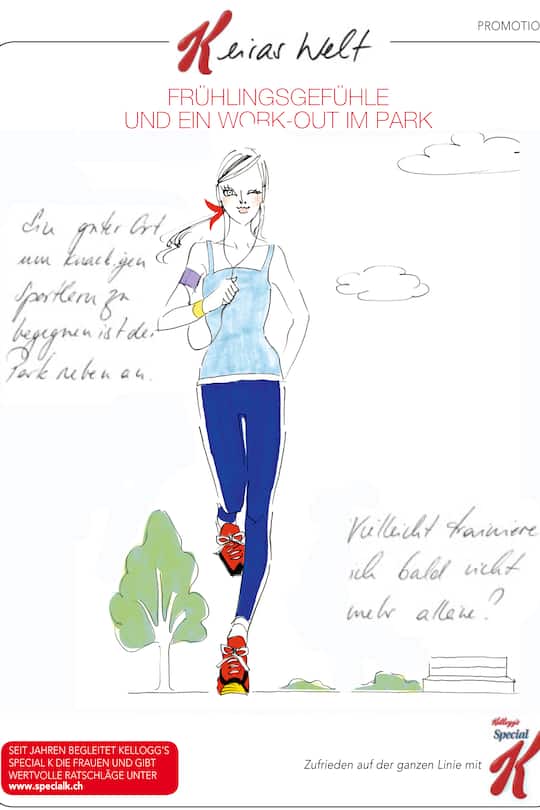 PROMOTIO
Keiras Welt
FRÜHLINGSGEFÜHLE
UND EIN WORK-OUT IM PARK
Ein guter Ort
um knackigen
Sportlern zu
begegnen ist der
Park neben an.
Vielleicht trainiere
ich bald nicht
mehr alleine?
SEIT JAHREN BEGLEITET KELLOGG'S
SPECIAL K DIE FRAUEN UND GIBT
WERTVOLLE RATSCHLÄGE UNTER
www.specialk.ch
Zufrieden auf der ganzen Linie mit
Kellogg's
Special
K